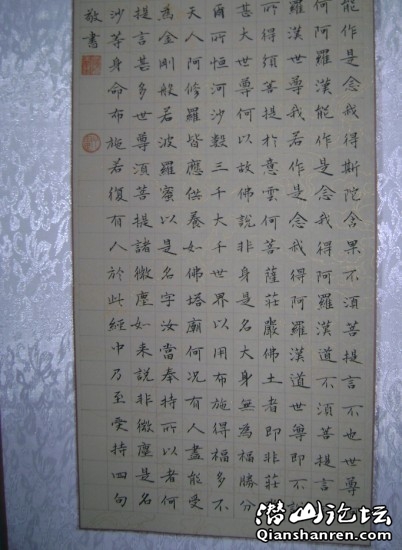 能作是念我得斯陀含果不須菩提言不也世尊
何阿羅漢能作是念我得阿羅漢道不須菩提言
羅漢世尊我若作是念我得阿羅漢道世尊即不
所得須菩提於意雲何菩薩莊嚴佛土者即非莊
甚大世尊何以故佛說非身是名大身無為福勝分
爾所恒河沙數三千大千世界以用布施得福多不
天人阿修羅皆應供養如佛塔廟何況有人盡能受
為金剛般若波羅蜜以是名字汝當奉持所以者何
提言甚多世尊須菩提諸微塵如來說非微塵是名
沙等身命布施若復有人於此經中乃至受持四句
敬書
潜山论坛
Qianshanren.com